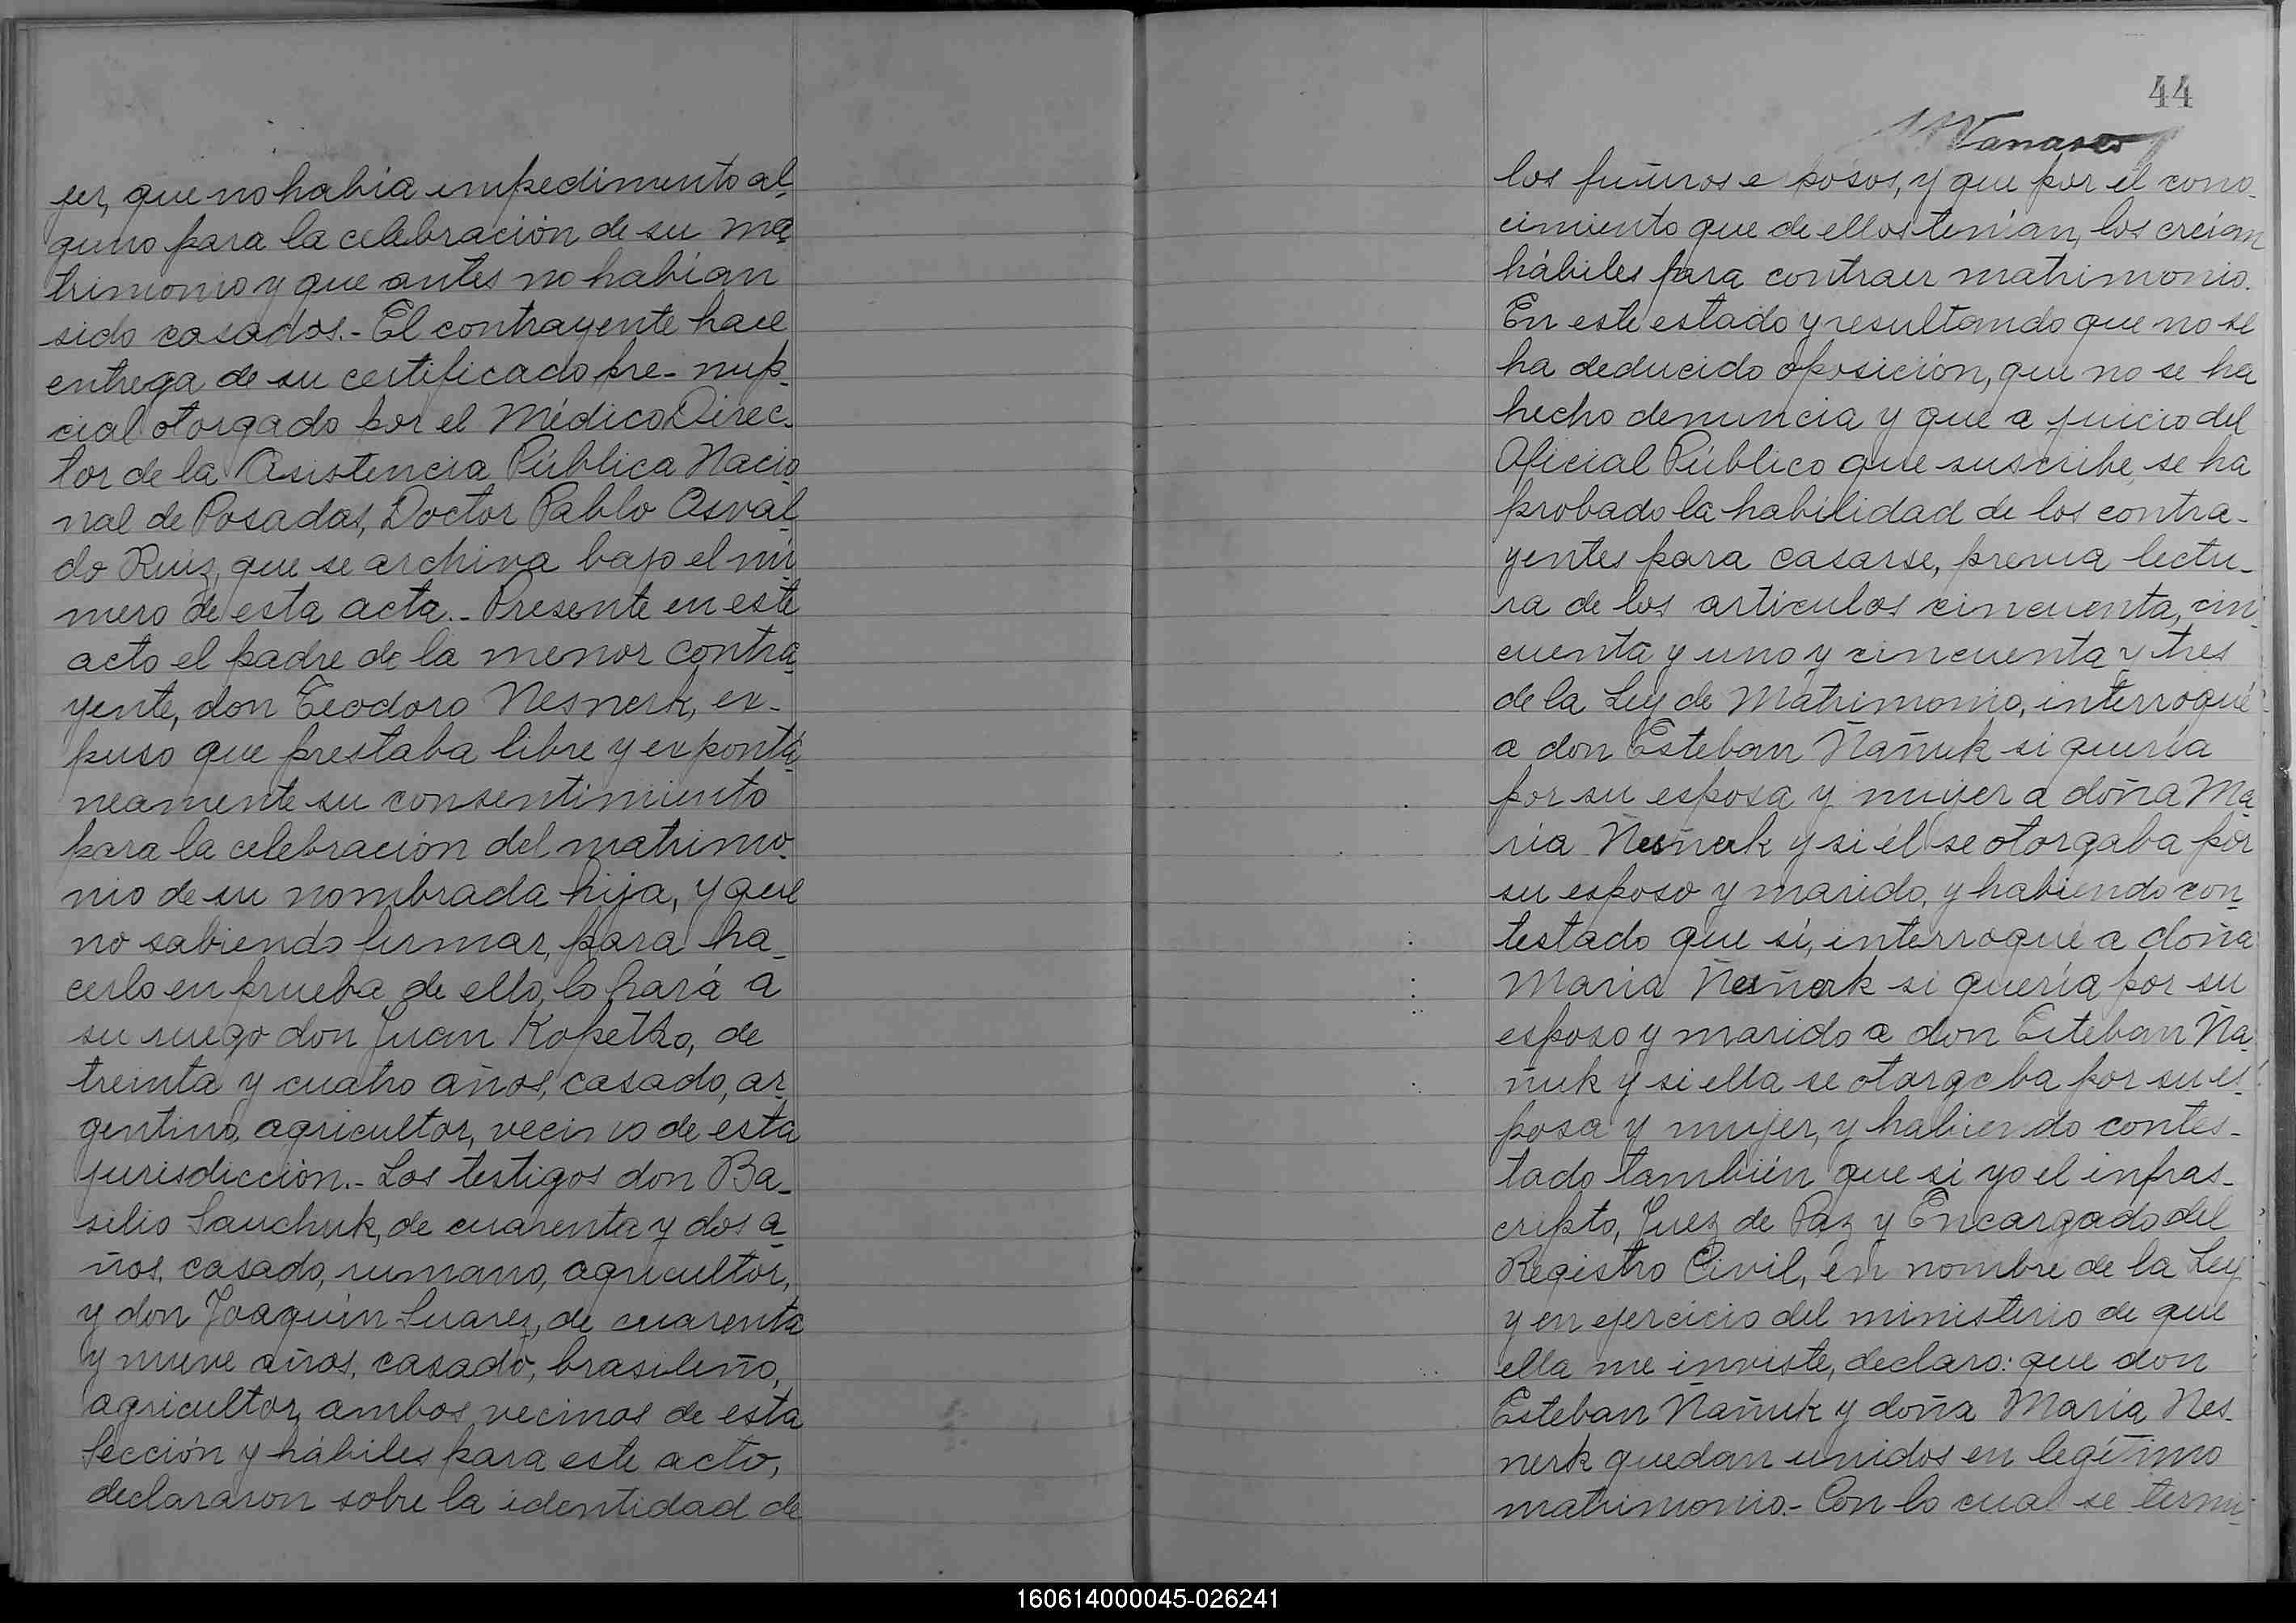 jer, que no había impedimento al-
guno para la celebración de su ma-
trimonio y que antes no habían
sido casados.- El contrayente hace
entrega de su certificado pre-nup-
cial otorgado por el Médico Direc-
tor de la Asistencia Pública Nacio-
nal de Posadas, Doctor Pablo Osval-
do Ruiz, que se archiva bajo el nú-
mero de esta acta.- Presente en este
acto el padre de la menor contra-
yente, don Teodoro Nesnerk, ex-
puso que prestaba libre y expontá-
neamente su consentimiento
para la celebración del matrimo-
nio de su nombrada hija, y que
no sabiendo firmar, para ha-
cerlo en prueba de ello, lo hará a
su ruego don Juan Kopetko, de
treinta y cuatro años, casado, ar-
gentino, agricultor, vecino de esta
jurisdicción.- Los testigos don Ba-
silio Sauchuk, de cuarenta y dos a-
ños, casado, rumano, agricultor,
y don Joaquín Suarez, de cuarenta
y nueve años, casado, brasileño,
agricultor, ambos vecinos de esta
Sección y hábiles para este acto,
declararon sobre la identidad de
44
los futuros e posos, y que por el cono-
cimiento que de ellos tenían, los creían
hábiles para contraer matrimonio.
En este estado y resultando que no se
ha deducido oposición, que no se ha
hecho denuncia y que a juicio del
Oficial Público que suscribe, se ha
probado la habilidad de los contra-
yentes para casarse, previa lectu-
ra de los artículos cincuenta, cin-
cuenta y uno y cincuenta y tres
de la Ley de Matrimonio, interrogué
a don Esteban Ñañuk si quería
por su esposa y mujer a doña Ma-
ría Ñesñerk y si él se otorgaba por
su esposo y marido, y habiendo con-
testado que sí, interrogué a doña
María Ñesñerk si quería por su
esposo y marido a don Esteban Ña-
ñuk y si ella se otorgaba por su es-
posa y mujer, y habiendo contes-
tado también que sí yo el infras-
cripto, Juez de Paz y Encargado del
Registro Civil, en nombre de la Ley
y en ejercicio del ministerio de que
ella me inviste, declaro: que don
Esteban Ñañuk y doña María Nes-
nerk quedan unidos en legítimo
matrimonio.- Con lo cual se termi-
160614000045-026241